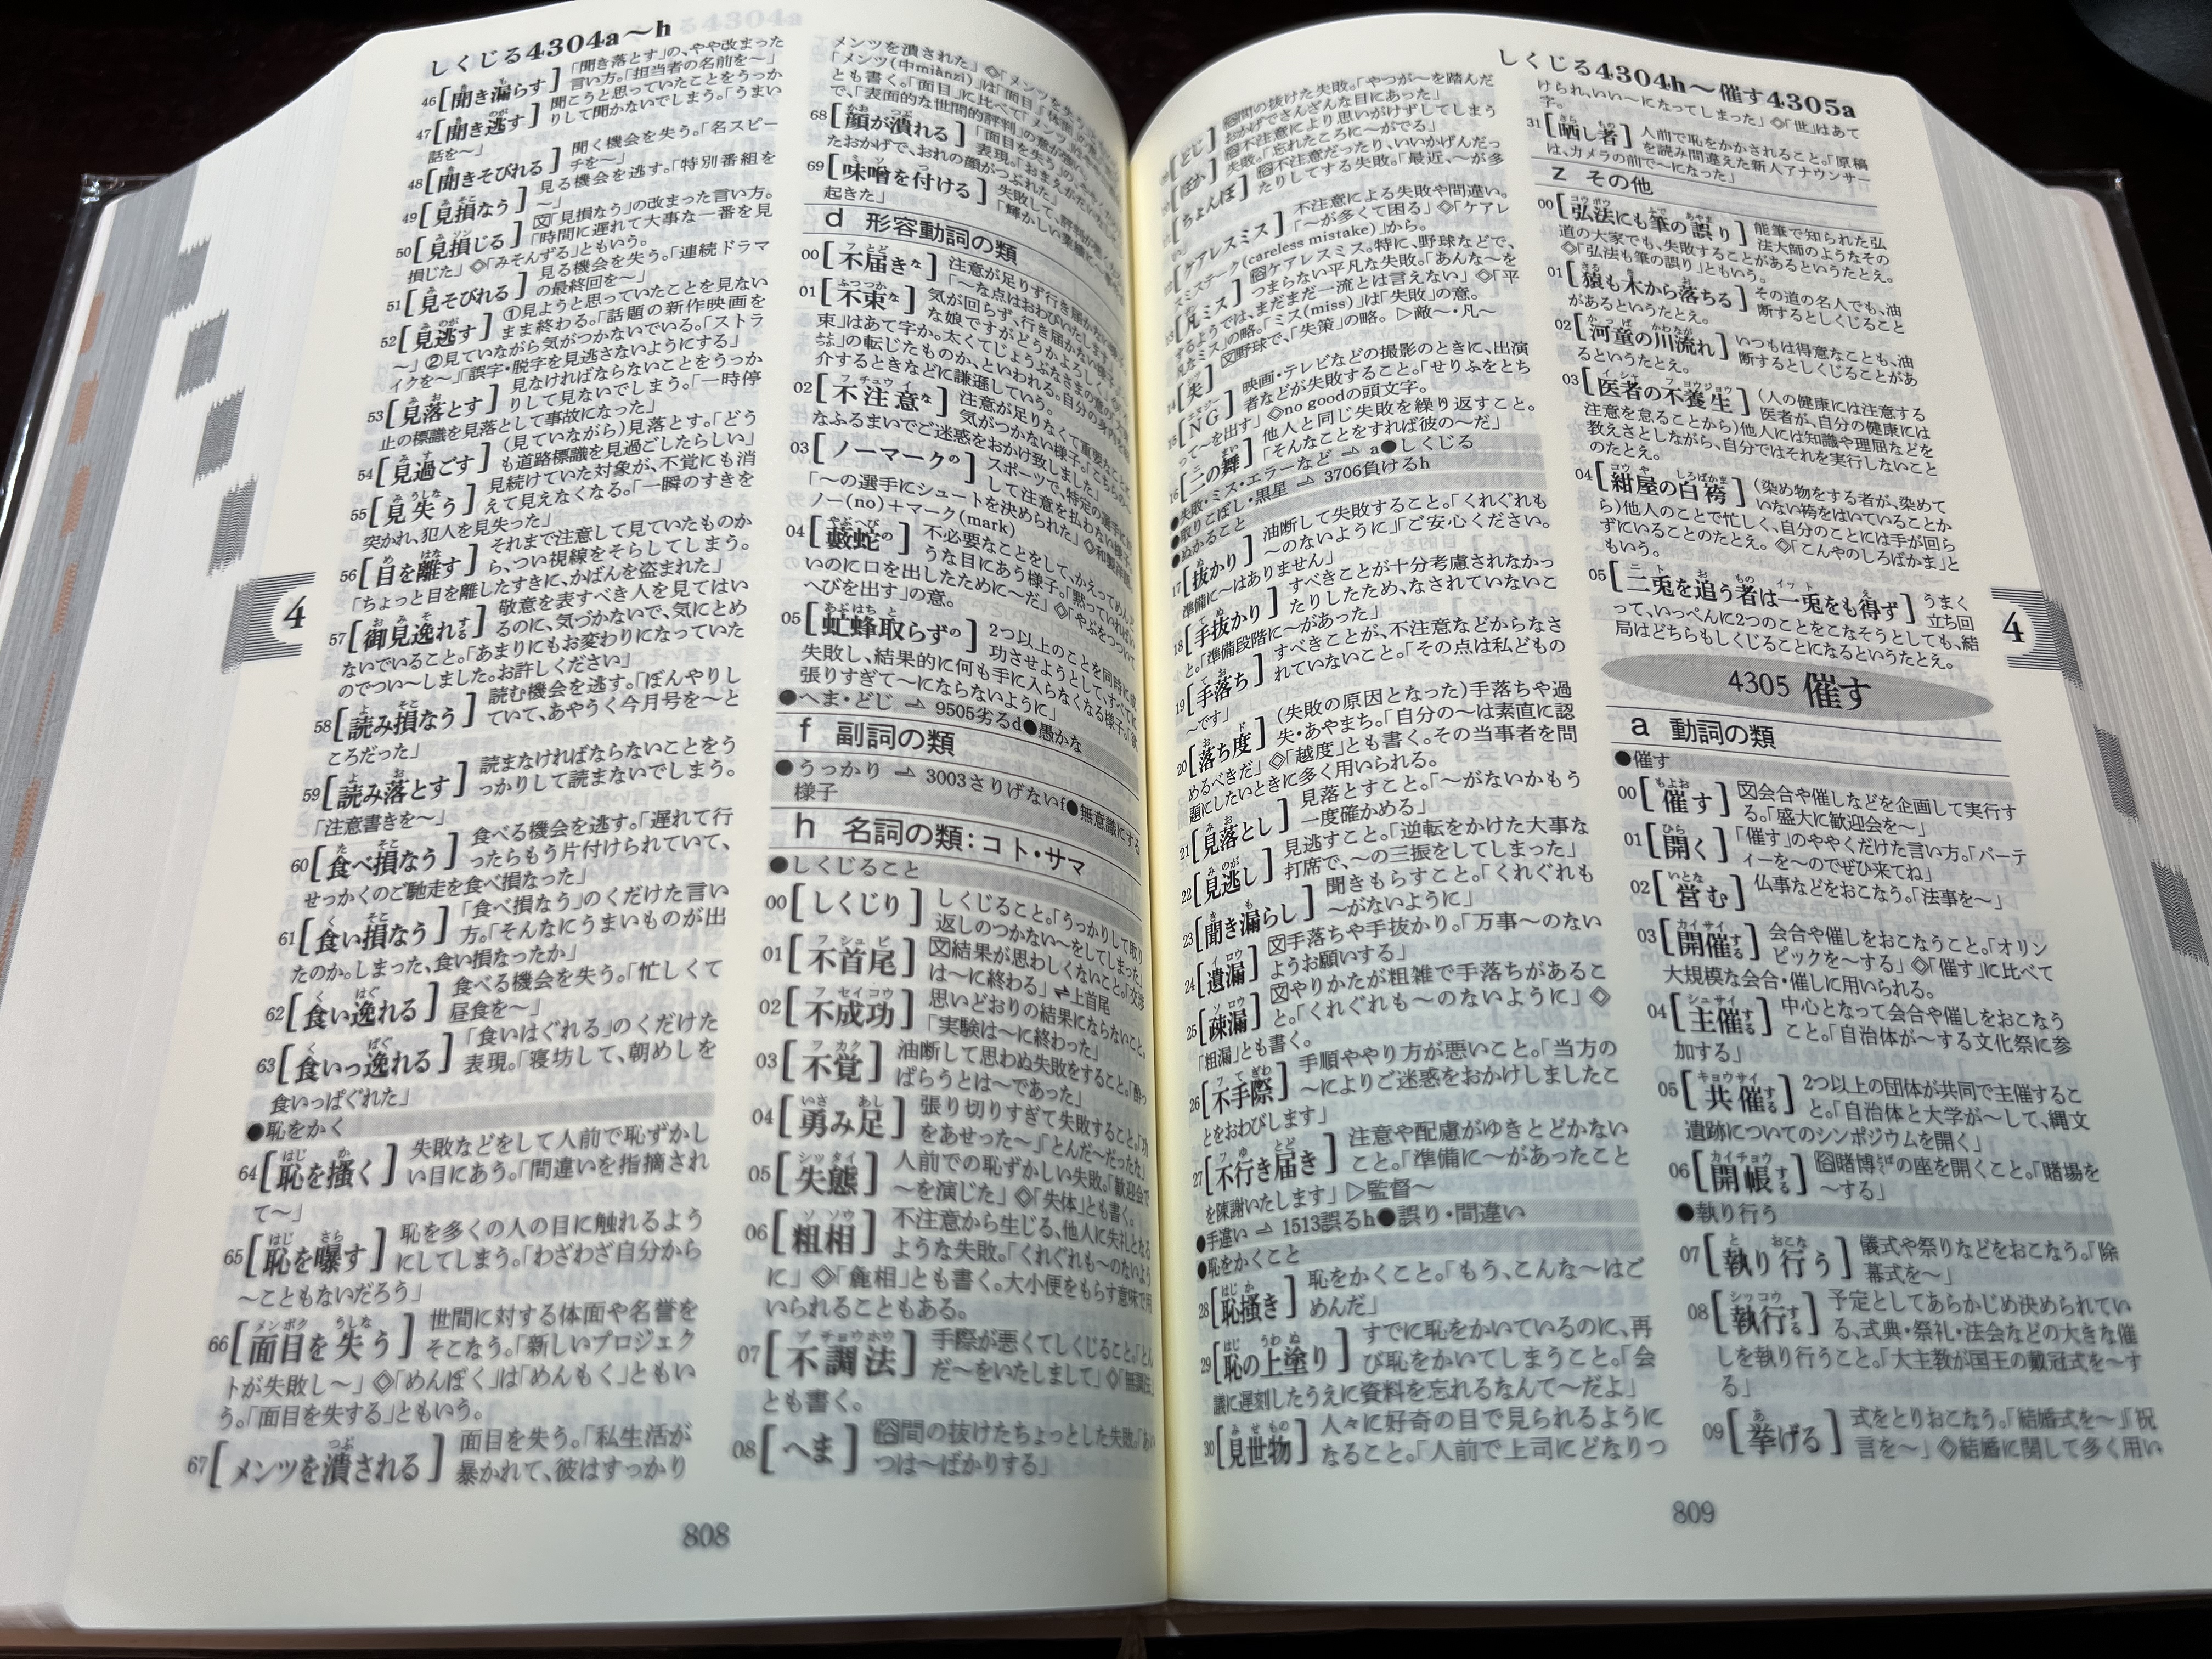 しくじる4304a～h
46[聞き漏らす]「聞き落とす」の、やや改まった
言い方。「担当者の名前を～」
47[聞き逃す]聞こうと思っていたことをうっか
りして聞かないでしまう。「うまい
話を～」
48[聞きそびれる]聞く機会を失う。「名スピー
チを～」
49[見損なう]見る機会を逃す。「特別番組を
～」
50[見損じる]文「見損なう」の改まった言い方。
「時間に遅れて大事な一番を見
損じた」◇「みそんずる」ともいう。
51[見そびれる]見る機会を失う。「連続ドラマ
の最終回を～」
52[見逃す]①見ようと思っていたことを見ない
まま終わる。「話題の新作映画を
～」②見ていながら気がつかないでいる。「ストラ
イクを～」「誤字・脱字を見逃さないようにする」
53[見落とす]見なければならないことをうっか
りして見ないでしまう。「一時停
止の標識を見落として事故になった」
54[見過ごす](見ていながら)見落とす。「どう
も道路標識を見過ごしたらしい」
55[見失う]見続けていた対象が、不覚にも消
えて見えなくなる。「一瞬のすきを
突かれ、犯人を見失った」
56[目を離す]それまで注意して見ていたものか
ら、つい視線をそらしてしまう。
「ちょっと目を離したすきに、かばんを盗まれた」
57[御見逸れする]敬意を表すべき人を見てはい
るのに、気づかないで、気にとめ
ないでいること。「あまりにもお変わりになっていた
のでつい～しました。お許しください」
58[読み損なう]読む機会を逃す。「ぼんやりし
ていて、あやうく今月号を～と
ころだった」
59[読み落とす]読まなければならないことをう
っかりして読まないでしまう。
「注意書きを～」
60[食べ損なう]食べる機会を逃す。「遅れて行
ったらもう片付けられていて、
せっかくのご馳走を食べ損なった」
61[食い損なう]「食べ損なう」のくだけた言い
方。「そんなにうまいものが出
たのか。しまった、食い損なったか」
62[食い逸れる]食べる機会を失う。「忙しくて
昼食を～」
63[食いっ逸れる]「食いはぐれる」のくだけた
表現。「寝坊して、朝めしを
食いっぱぐれた」
●恥をかく
64[恥を掻く]失敗などをして人前で恥ずかし
い目にあう。「間違いを指摘され
て～」
65[恥を曝す]恥を多くの人の目に触れるよう
にしてしまう。「わざわざ自分から
～こともないだろう」
66[面目を失う]世間に対する体面や名誉を
そこなう。「新しいプロジェク
トが失敗し～」◇「めんぼく」は「めんもく」ともい
う。「面目を失する」ともいう。
67[メンツを潰される]面目を失う。「私生活が
暴かれて、彼はすっかり
メンツを潰された」◇「メンツを失
「メンツ(中miànzi)」は「面目
とも書く。「面目」に比べて「メンツ
で、「表面的な世間的評判」の意が強い
68[顔が潰れる]「面目を失う」の
表現。「おまえが
たおかげで、おれの顔がつぶれた」
69[味噌を付ける]失敗して、評判が
「輝かしい業績に
起きた」
d 形容動詞の類
00[不届きな]注意が足りず行き届かない様子。
「～な点はおわびいたします」
01[不束な]気が回らず、行き届かない
な娘ですがどうかよろしく
束」はあて字か。太くてじょうぶなさまの意の
の転じたものか、といわれる。自分の身内を
介するときなどに謙遜していう。
02[不注意な]注意が足りなくて重要なことに
気がつかない様子。「こちらの
なふるまいでご迷惑をおかけ致しました」
03[ノーマークの]スポーツで、特定の選手に
して注意を払わない様子。
「～の選手にシュートを決められた」◇和製
ノー(no)＋マーク(mark)
04[藪蛇の]不必要なことをして、かえってめん
うな目にあう様子。「黙っていればい
いのに口を出したために～だ」◇「やぶをつついて
へびを出す」の意。
05[虻蜂取らずの]2つ以上のことを同時に成
功させようとして、すべてに
失敗し、結果的に何も手に入らなくなる様子。「欲
張りすぎて～にならないように」
●へま・どじ ⇀ 9505劣るd●愚かな
f 副詞の類
●うっかり ⇀ 3003さりげないf●無意識にする
様子
h 名詞の類：コト・サマ
●しくじること
00[しくじり]しくじること。「うっかりして取り
返しのつかない～をしてしまった」
01[不首尾]文結果が思わしくないこと。「交渉
は～に終わる」⇌上首尾
02[不成功]思いどおりの結果にならないこと。
「実験は～に終わった」
03[不覚]油断して思わぬ失敗をすること。「酔っ
ぱらうとは～であった」
04[勇み足]張り切りすぎて失敗すること。「功
をあせった～」「とんだ～だったな」
05[失態]人前での恥ずかしい失敗。「歓迎会で
～を演じた」◇「失体」とも書く。
06[粗相]不注意から生じる、他人に失礼となる
ような失敗。「くれぐれも～のないよう
に」◇「麁相」とも書く。大小便をもらす意味で用
いられることもある。
07[不調法]手際が悪くてしくじること。「とん
だ～をいたしまして」◇「無調法」
とも書く。
08[へま]俗間の抜けたちょっとした失敗。「あい
つは～ばかりする」
808
しくじる4304h～催す4305a
[どじ]俗間の抜けた失敗。「やつが～を踏んだ
おかげでさんざんな目にあった」
[ぽか]俗不注意により思いがけずしてしまう
失敗。「忘れたころに～がでる」
[ちょんぼ]俗不注意だったり、いいかげんだっ
たりしてする失敗。「最近、～が多
い」
12[ケアレスミス]不注意による失敗や間違い。
「～が多くて困る」◇「ケアレ
スミステーク(careless mistake)」から。
13[凡ミス]俗ケアレスミス。特に、野球などで、
つまらない平凡な失敗。「あんな～を
するようでは、まだまだ一流とは言えない」◇「平
凡なミス」の略。「ミス(miss)」は「失敗」の意。
14[失]文野球で、「失策」の略。▷敵～・凡～
15[NG]映画・テレビなどの撮影のときに、出演
者などが失敗すること。「せりふをとち
って～を出す」◇no goodの頭文字。
16[二の舞]他人と同じ失敗を繰り返すこと。
「そんなことをすれば彼の～だ」
●失敗・ミス・エラーなど ⇀ a●しくじる
●取りこぼし・黒星 ⇀ 3706負けるh
●ぬかること
17[抜かり]油断して失敗すること。「くれぐれも
～のないように」「ご安心ください。
準備に～はありません」
18[手抜かり]すべきことが十分考慮されなかっ
たりしたため、なされていないこ
と。「準備段階に～があった」
19[手落ち]すべきことが、不注意などからなさ
れていないこと。「その点は私どもの
～です」
20[落ち度](失敗の原因となった)手落ちや過
失・あやまち。「自分の～は素直に認
めるべきだ」◇「越度」とも書く。その当事者を問
題にしたいときに多く用いられる。
21[見落とし]見落とすこと。「～がないかもう
一度確かめる」
22[見逃し]見逃すこと。「逆転をかけた大事な
打席で、～の三振をしてしまった」
23[聞き漏らし]聞きもらすこと。「くれぐれも
～がないように」
24[遺漏]文手落ちや手抜かり。「万事～のない
ようお願いする」
25[疎漏]文やりかたが粗雑で手落ちがあるこ
と。「くれぐれも～のないように」◇
「粗漏」とも書く。
26[不手際]手順ややり方が悪いこと。「当方の
～によりご迷惑をおかけしましたこ
とをおわびします」
27[不行き届き]注意や配慮がゆきとどかない
こと。「準備に～があったこと
を陳謝いたします」▷監督～
●手違い ⇀ 1513誤るh●誤り・間違い
●恥をかくこと
28[恥掻き]恥をかくこと。「もう、こんな～はご
めんだ」
29[恥の上塗り]すでに恥をかいているのに、再
び恥をかいてしまうこと。「会
議に遅刻したうえに資料を忘れるなんて～だよ」
30[見世物]人々に好奇の目で見られるように
なること。「人前で上司にどなりつ
けられ、いい～になってしまった」◇「世」はあて
字。
31[晒し者]人前で恥をかかされること。「原稿
を読み間違えた新人アナウンサー
は、カメラの前で～になった」
z その他
00[弘法にも筆の誤り]能筆で知られた弘
法大師のようなその
道の大家でも、失敗することがあるというたとえ。
◇「弘法も筆の誤り」ともいう。
01[猿も木から落ちる]その道の名人でも、油
断するとしくじること
があるというたとえ。
02[河童の川流れ]いつもは得意なことも、油
断するとしくじることがあ
るというたとえ。
03[医者の不養生](人の健康には注意する
医者が、自分の健康には
注意を怠ることから)他人には知識や理屈などを
教えさとしながら、自分ではそれを実行しないこと
のたとえ。
04[紺屋の白袴](染め物をする者が、染めて
いない袴をはいていることか
ら)他人のことで忙しく、自分のことには手が回ら
ずにいることのたとえ。◇「こんやのしろばかま」と
もいう。
05[二兎を追う者は一兎をも得ず]うまく
立ち回
って、いっぺんに2つのことをこなそうとしても、結
局はどちらもしくじることになるというたとえ。
4305 催す
a 動詞の類
●催す
00[催す]文会合や催しなどを企画して実行す
る。「盛大に歓迎会を～」
01[開く]「催す」のややくだけた言い方。「パーテ
ィーを～のでぜひ来てね」
02[営む]仏事などをおこなう。「法事を～」
03[開催する]会合や催しをおこなうこと。「オリン
ピックを～する」◇「催す」に比べて
大規模な会合・催しに用いられる。
04[主催する]中心となって会合や催しをおこなう
こと。「自治体が～する文化祭に参
加する」
05[共催する]2つ以上の団体が共同で主催するこ
と。「自治体と大学が～して、縄文
遺跡についてのシンポジウムを開く」
06[開帳する]俗賭博の座を開くこと。「賭場を
～する」
●執り行う
07[執り行う]儀式や祭りなどをおこなう。「除
幕式を～」
08[執行する]予定としてあらかじめ決められてい
る、式典・祭礼・法会などの大きな催
しを執り行うこと。「大主教が国王の戴冠式を～す
る」
09[挙げる]式をとりおこなう。「結婚式を～」「祝
言を～」◇結婚に関して多く用い
809
4
4